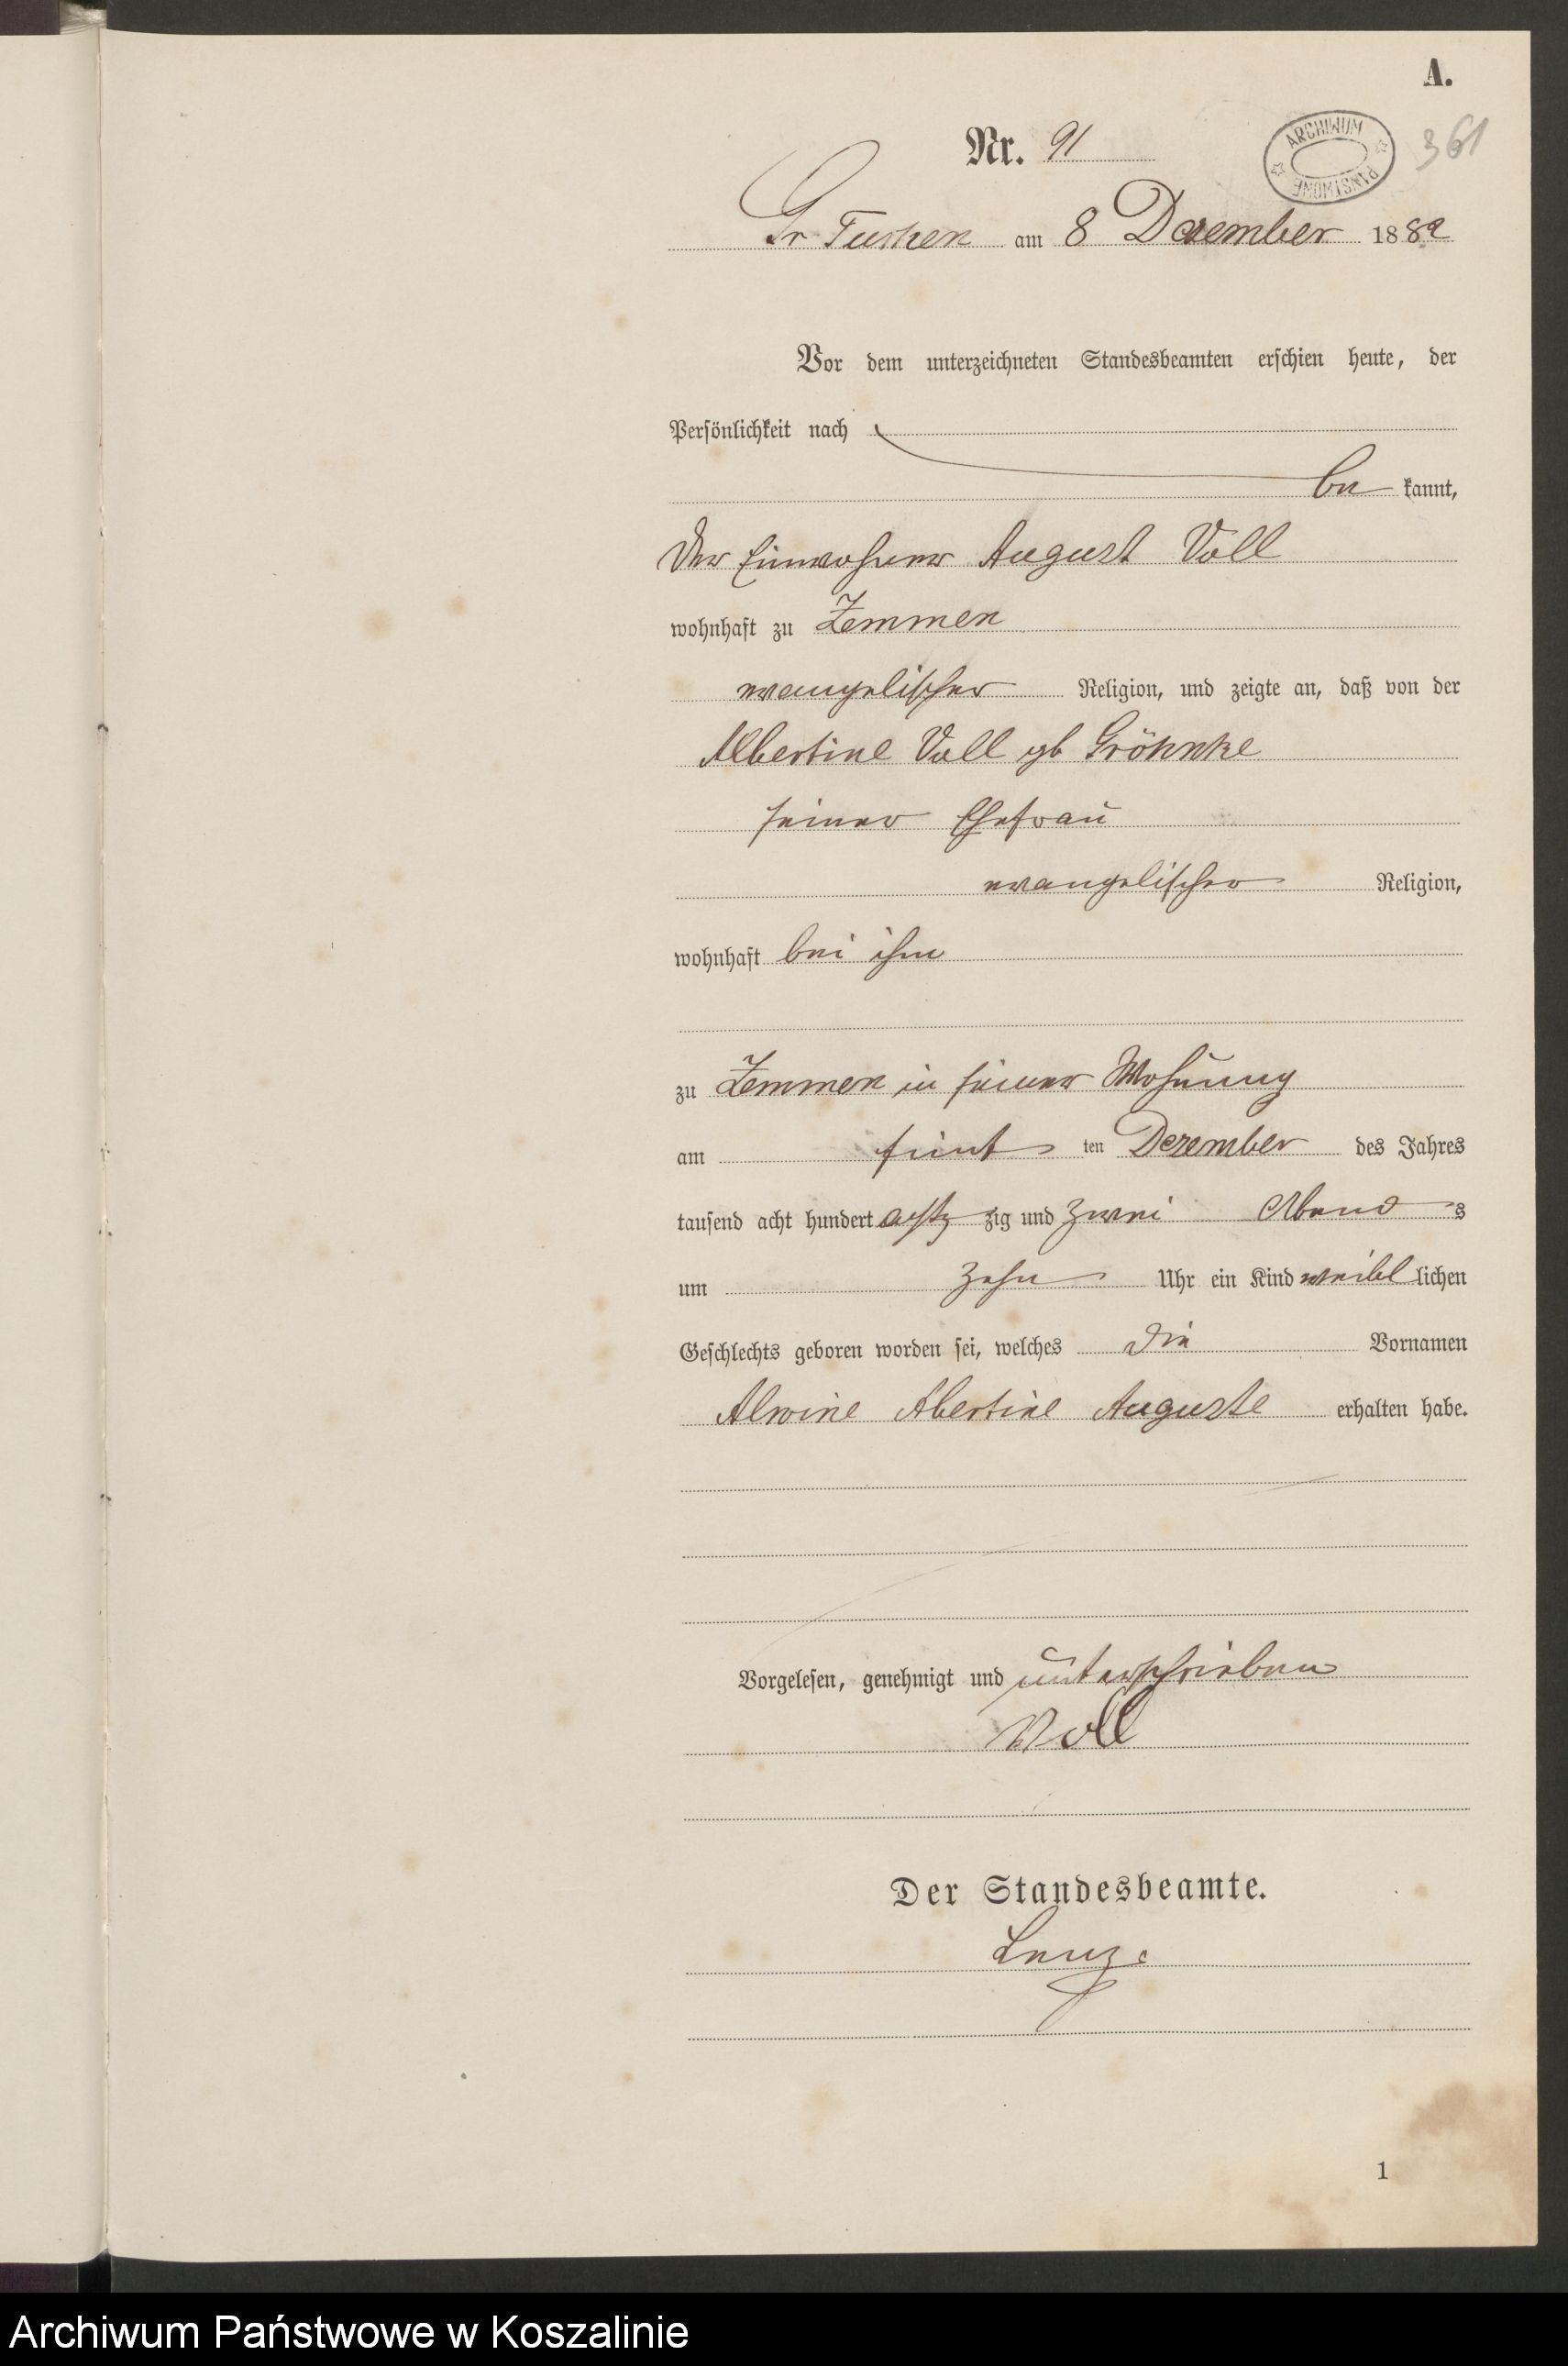 A.
Nr. 91
ARCHIWUM PAŃSTWOWE
361
Gr Tuchen am 8 Dezember 1882
Vor dem unterzeichneten Standesbeamten erschien heute, der
Persönlichkeit nach
be kannt,
Der Einwohner August Voll
wohnhaft zu Zemmen
evangelischer Religion, und zeigte an, daß von der
Albertine Voll gb Gröhnke
seiner Ehefrau
evangelischer Religion,
wohnhaft bei ihm
zu Zemmen in seiner Wohnung
am fünf ten Dezember des Jahres
tausend acht hundert acht zig und zwei Abend s
um zehn Uhr ein Kind weibl lichen
Geschlechts geboren worden sei, welches die Vornamen
Alwine Albertine Auguste erhalten habe.
Vorgelesen, genehmigt und unterschrieben
Voll
Der Standesbeamte.
Lenz.
1
Archiwum Państwowe w Koszalinie